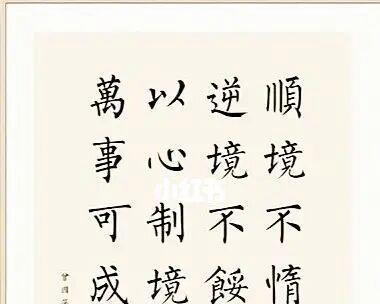 順境不惰
逆境不餒
以心制境
萬事可成
曾國
小红书